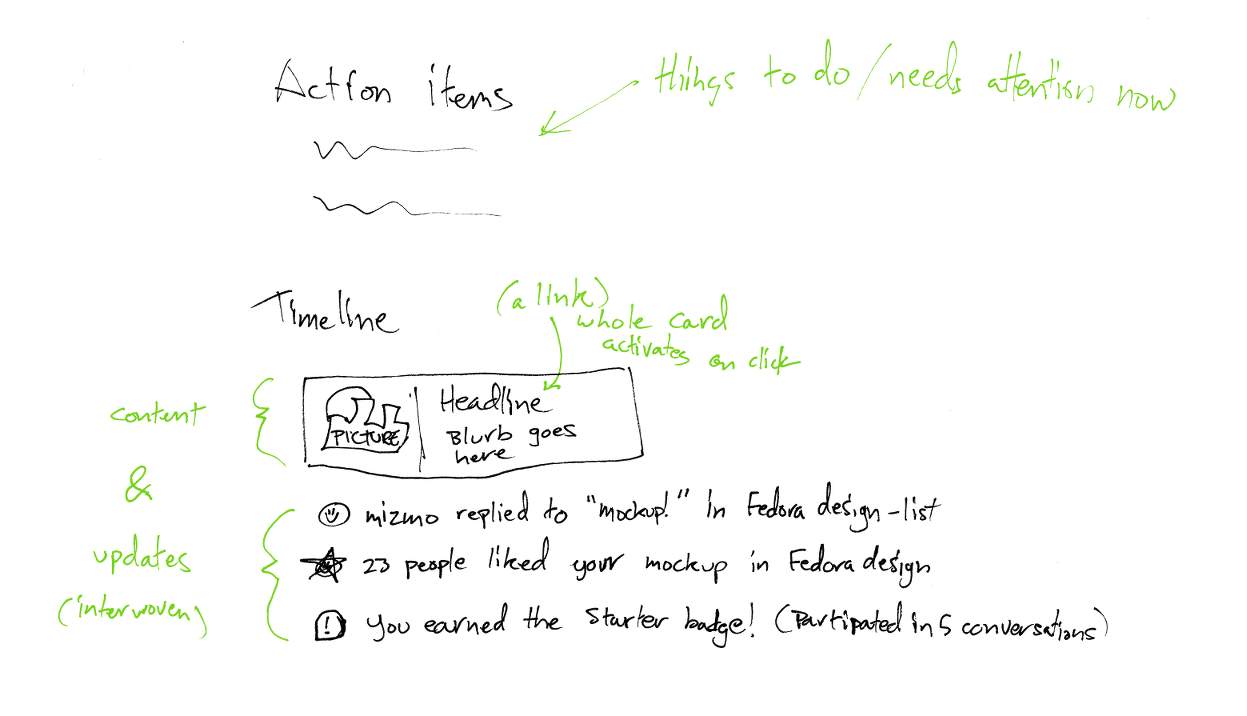 Action items
things to do / needs attention now
Timeline
(a link)
whole card
activates on click
content
&
updates
(interwoven)
PICTURE
Headline
Blurb goes
here
mizmo replied to "mockup!" in Fedora design-list
23 people liked your mockup in Fedora design
You earned the Starter badge! (Partipated in 5 conversations)